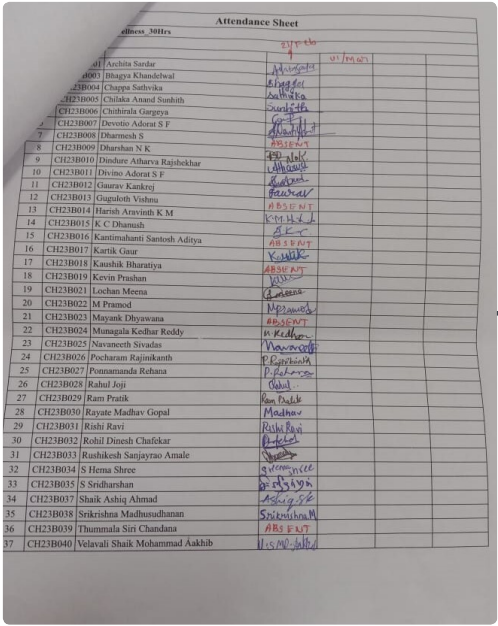 Attendance Sheet
ellness_30Hrs
21/Feb
01/Mar
01 Archita Sardar
B003 Bhagya Khandelwal Bhagya
CH23B004 Chappa Sathvika Sathvika
CH23B005 Chilaka Anand Sunhith Sunhith
CH23B006 Chithirala Gargeya
CH23B007 Devotio Adorat S F
7 CH23B008 Dharmesh S
8 CH23B009 Dharshan N K ABSENT
9 CH23B010 Dindure Atharva Rajshekhar
10 CH23B011 Divino Adorat S F
11 CH23B012 Gaurav Kankrej
12 CH23B013 Guguloth Vishnu
13 CH23B014 Harish Aravinth K M ABSENT
14 CH23B015 K C Dhanush
15 CH23B016 Kantimahanti Santosh Aditya ABSENT
16 CH23B017 Kartik Gaur
17 CH23B018 Kaushik Bharatiya ABSENT
18 CH23B019 Kevin Prashan
19 CH23B021 Lochan Meena
20 CH23B022 M Pramod MPramod
21 CH23B023 Mayank Dhyawana ABSENT
22 CH23B024 Munagala Kedhar Reddy
23 CH23B025 Navaneet Sivadas
24 CH23B026 Pocharam Rajinikanth P. Rajinikanth
25 CH23B027 Ponnamanda Rehana P. Rehana
26 CH23B028 Rahul Joji Rahul
27 CH23B029 Ram Pratik Ram Pratik
28 CH23B030 Rayate Madhav Gopal Madhav
29 CH23B031 Rishi Ravi Rishi Ravi
30 CH23B032 Rohil Dinesh Chafekar
31 CH23B033 Rushikesh Sanjayrao Amale
32 CH23B034 S Hema Shree
33 CH23B035 S Sridharshan
34 CH23B037 Shaik Ashiq Ahmad Ashiq
35 CH23B038 Srikrishna Madhusudhanan Srikrishna M
36 CH23B039 Thummala Siri Chandana ABSENT
37 CH23B040 Velavali Shaik Mohammad Aakhib